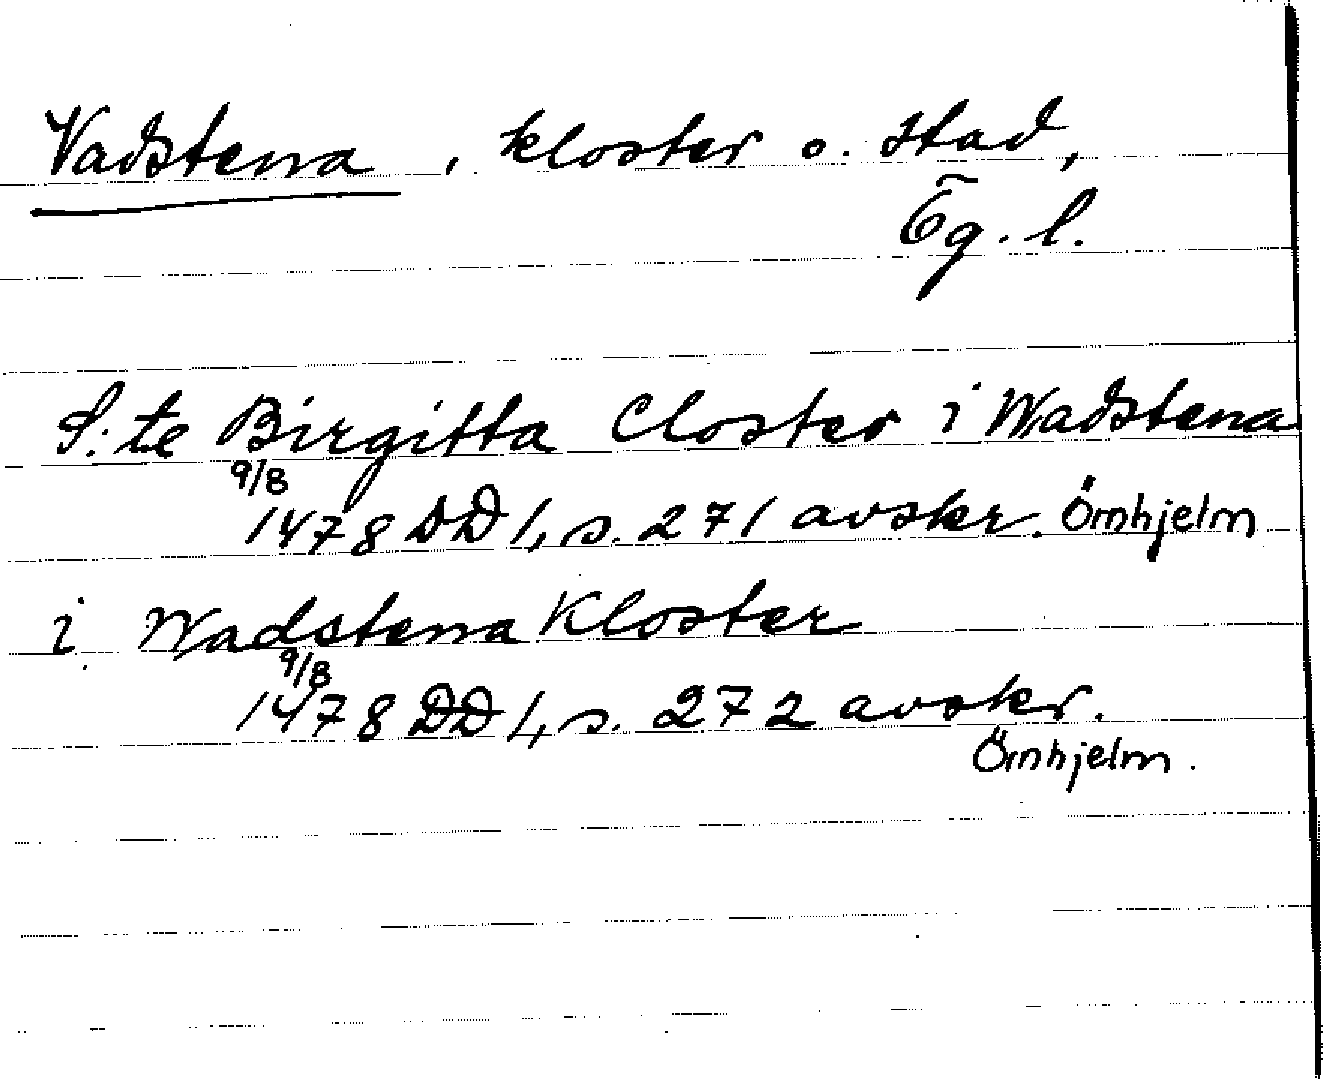 Vadstena, kloster o. stad,
Ög. l.
S:te Birgitta Closter i Wadstena
9/8
1478 DD 1, s. 271 avskr. Örnhjelm
i Wadstena Kloster
9/8
1478 DD 1, s. 272 avskr.
Örnhjelm.